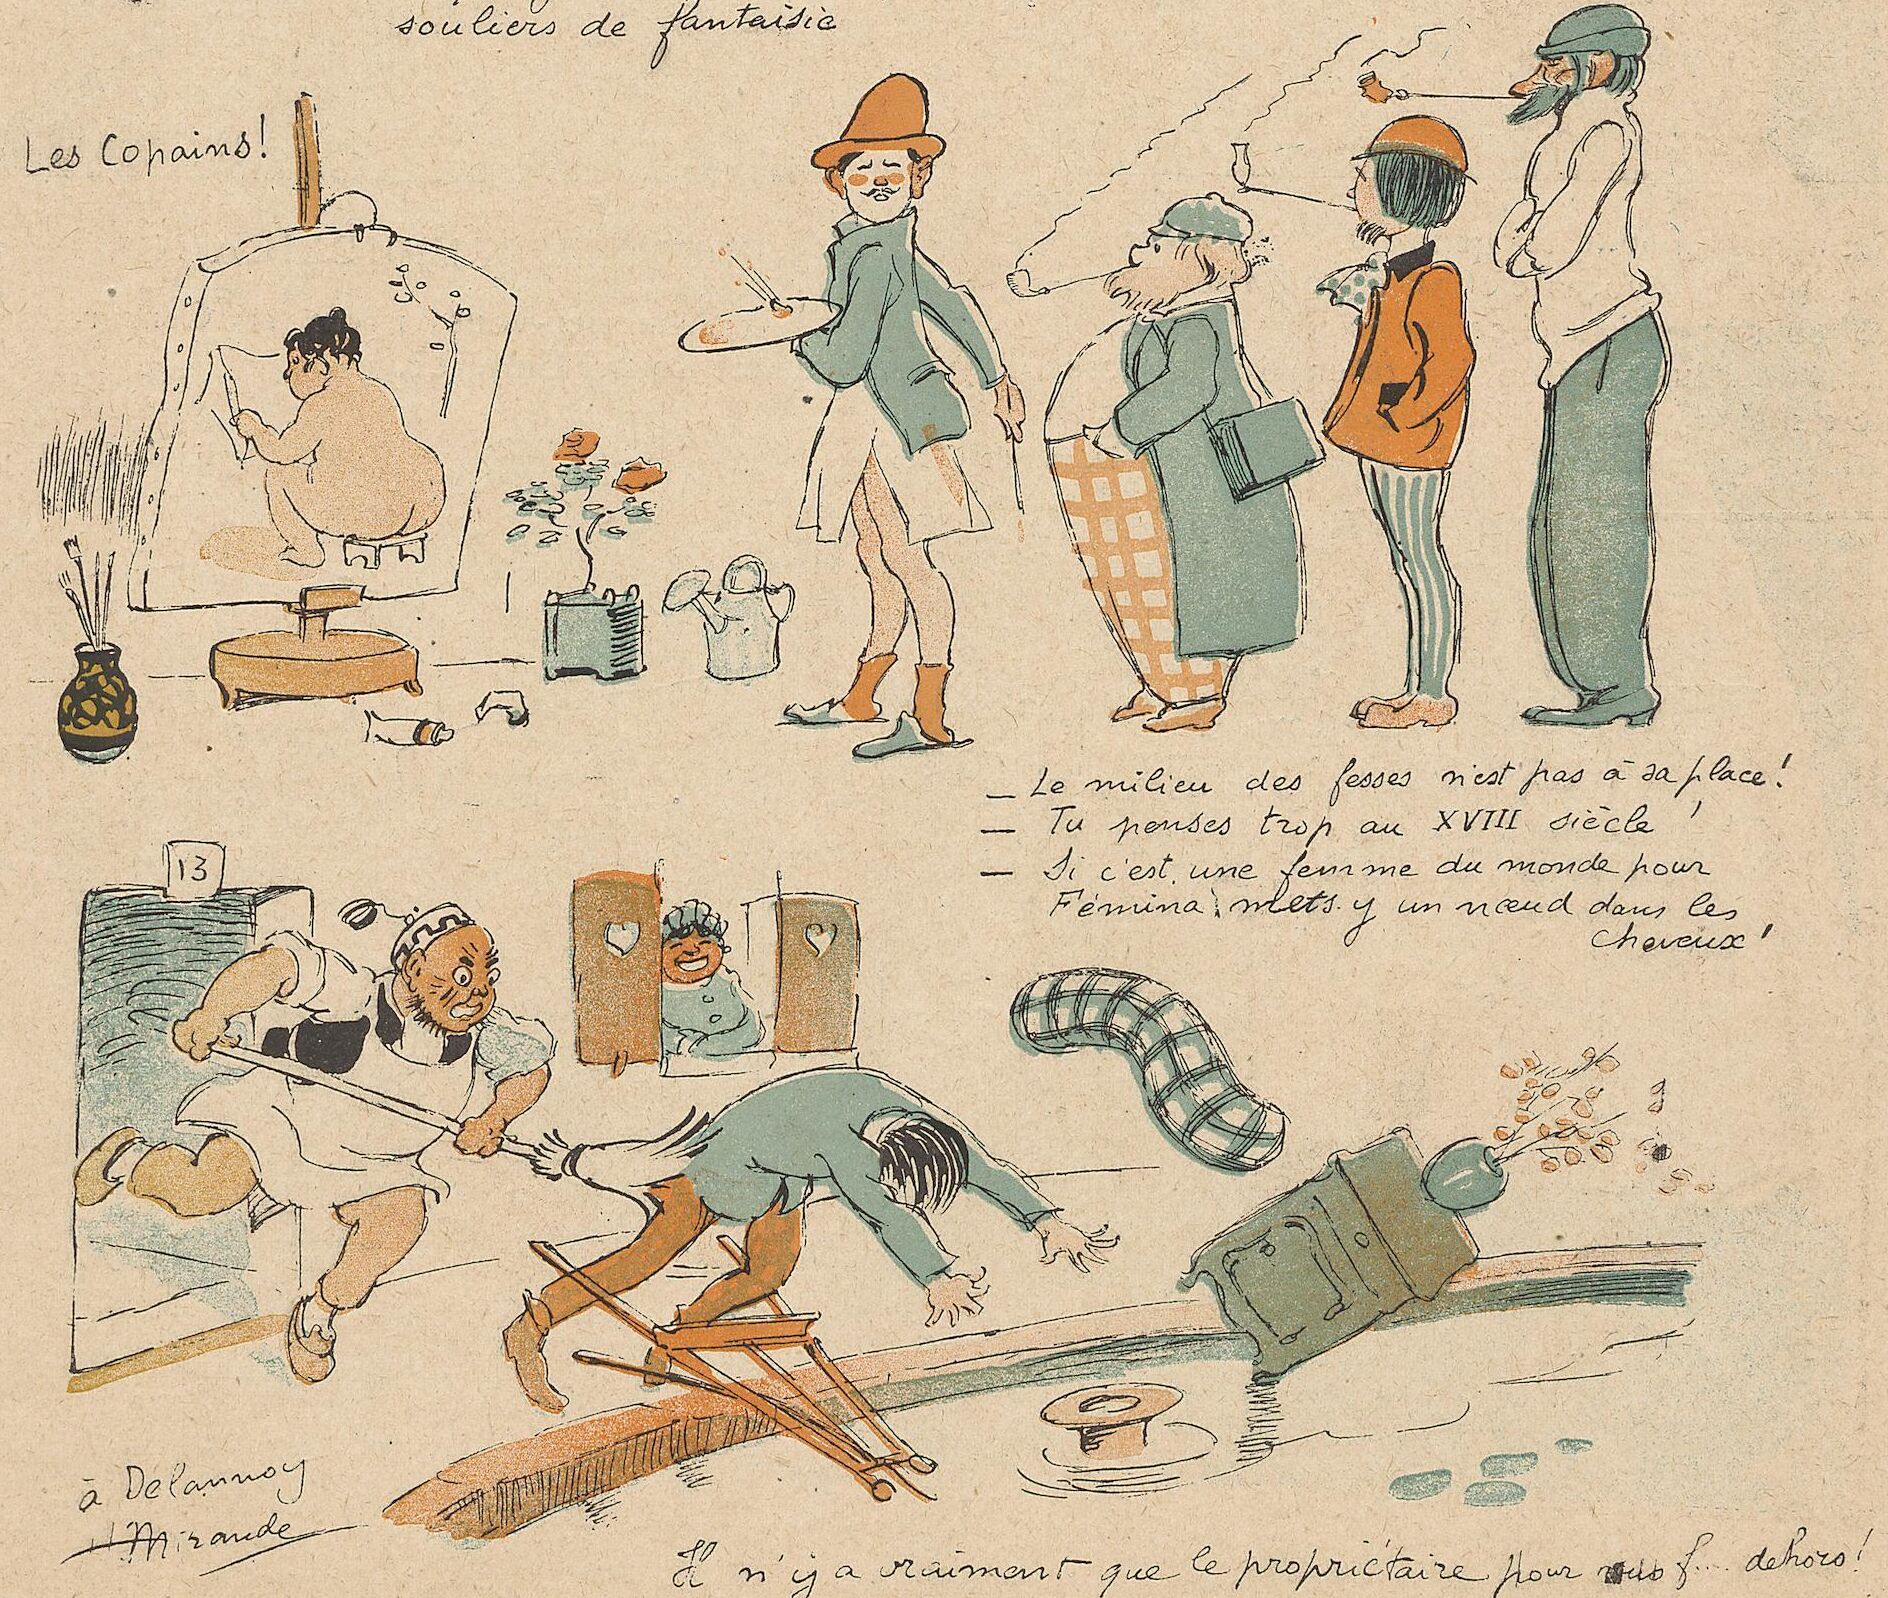 souliers de fantaisie
Les Copains!
— Le milieu des fesses n'est pas à sa place!
— Tu penses trop au XVIII siècle!
— Si c'est une femme du monde pour
Fémina, mets-y un nœud dans les
cheveux!
13
à Delannoy
H Mirande
Il n'y a vraiment que le propriétaire pour vous f.... dehors!